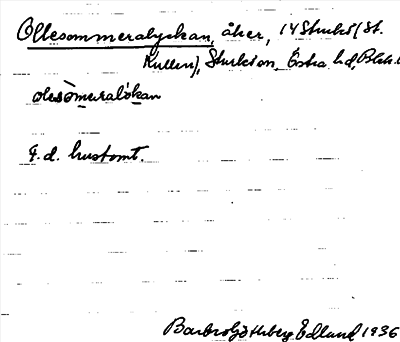 Ollesommeralyckan, åker, 14 Sturkö (St.
Kullen), Sturkö sn, Östra hd, Blek.
olesòmeralỳkan
F.d. hustomt.
Barbro Götlberg Edlund 1936